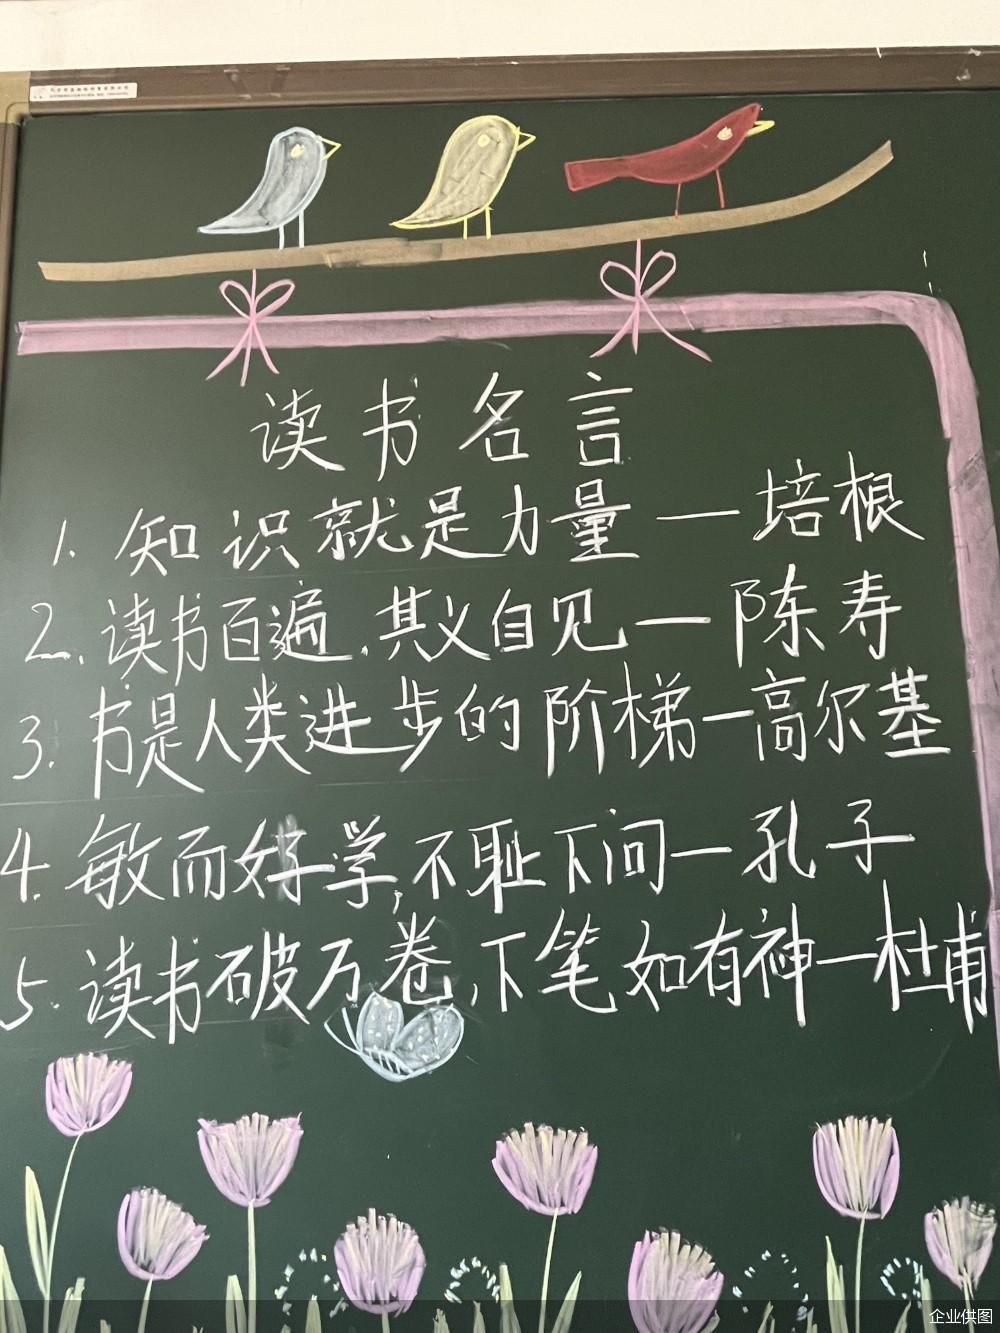 读书名言
1. 知识就是力量——培根
2. 读书百遍,其义自见——陈寿
3. 书是人类进步的阶梯—高尔基
4. 敏而好学,不耻下问—孔子
5. 读书破万卷,下笔如有神—杜甫
企业供图